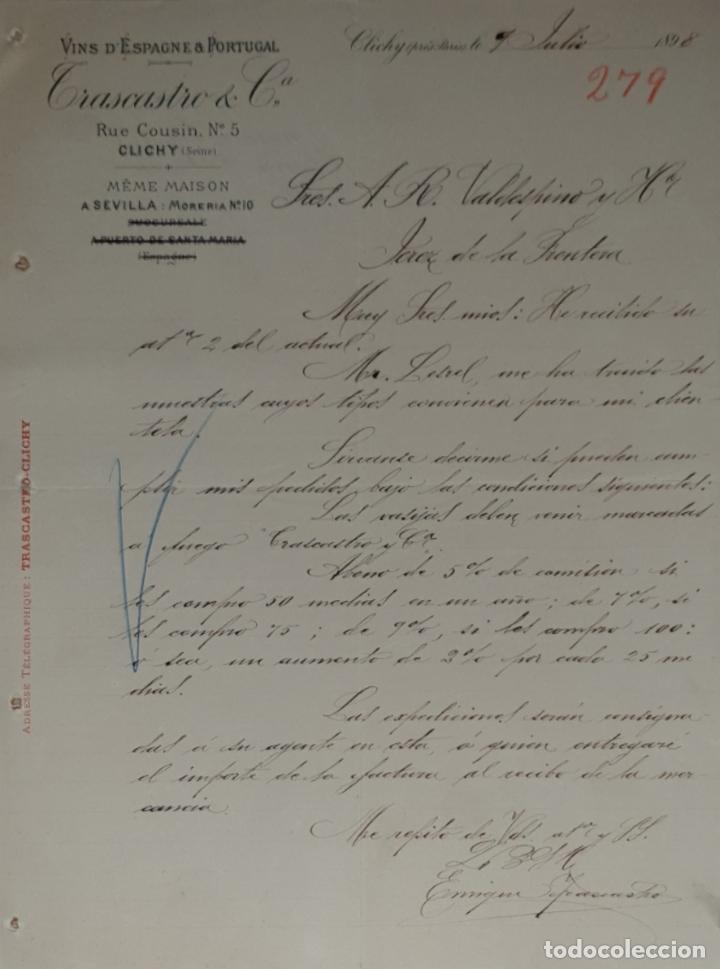 VINS D'ESPAGNE & PORTUGAL
Trascastro & Cª
RUE COUSIN, Nº 5
CLICHY (Seine)
MÊME MAISON
A SEVILLA: MORERIA Nº 10
SUCCURSALE
A PUERTO DE SANTA MARIA
(Espagne)
Clichy (près Paris) le 7 Julio 1898
279
Sres. A. R. Valdespino y Hº
Jerez de la Frontera
Muy Sres. mios: He recibido su
atª 2 del actual.
Mr. Lesrel, me ha traido las
muestras cuyos tipos convienen para mi clien-
tela.
Sirvanse decirme si pueden cum-
plir mis pedidos bajo las condiciones siguientes:
Las vasijas deben venir marcadas
á fuego "Trascastro y Cª
Abono de 5% de comision si
les compro 50 medias en un año; de 7%, si
les compro 75; de 9%, si les compro 100:
ó sea, un aumento de 2% por cada 25 me-
dias.
Las expediciones serán consigna-
das á su agente en esta, á quien entregaré
el importe de la factura al recibo de la mer-
cancia.
Me repito de Vds. atº y SS.
Q B S M
Enrique Trascastro
ADRESSE TÉLÉGRAPHIQUE: TRASCASTRO-CLICHY
todocoleccion
todocoleccion.net